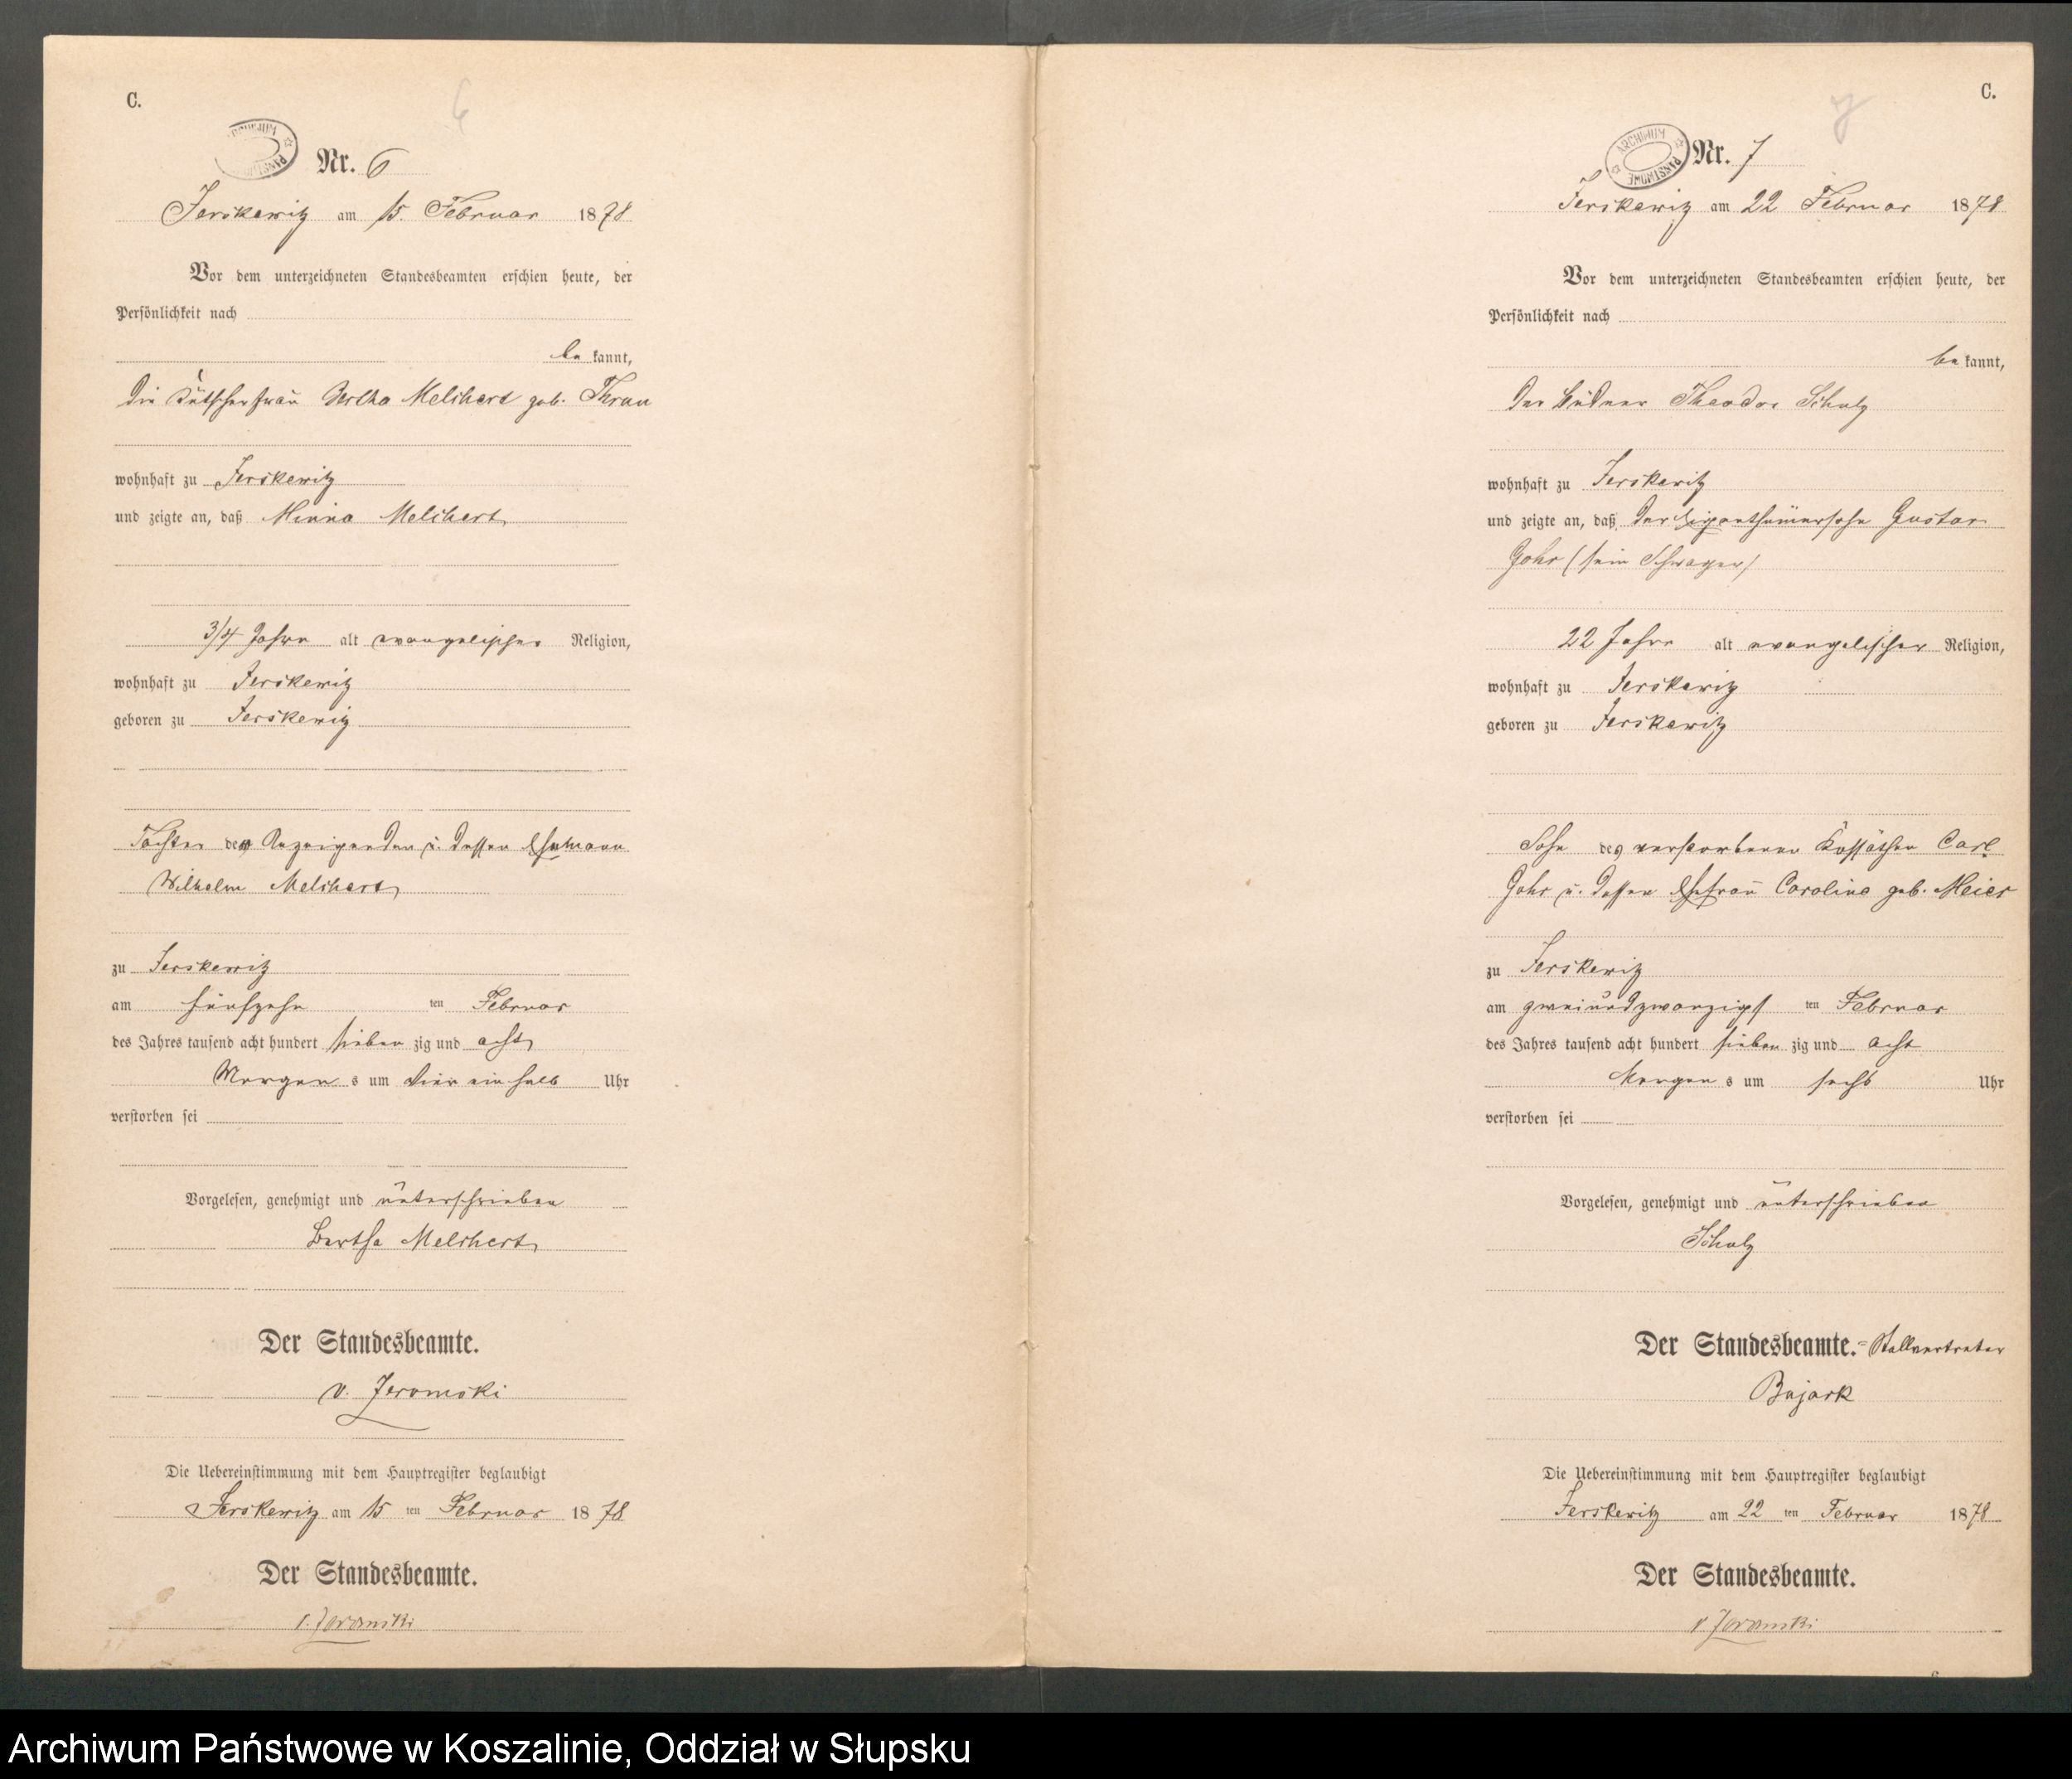 C.
6
ARCHIWUM PAŃSTWOWE
Nr. 6
Jerskewitz am 15. Februar 1878
Vor dem unterzeichneten Standesbeamten erschien heute, der
Persönlichkeit nach
be kannt,
die Kutscherfrau Bertha Melchert geb. Thrun
wohnhaft zu Jerskewitz
und zeigte an, daß Minna Melchert
3/4 Jahre alt evangelischer Religion,
wohnhaft zu Jerskewitz
geboren zu Jerskewitz
Tochter der Anzeigenden u. dessen Ehemann
Wilhelm Melchert
zu Jerskewitz
am fünfzehn ten Februar
des Jahres tausend acht hundert sieben zig und acht
Morgen s um vier ein halb Uhr
verstorben sei
Vorgelesen, genehmigt und unterschrieben
Bertha Melchert
Der Standesbeamte.
v. Jeromski
Die Uebereinstimmung mit dem Hauptregister beglaubigt
Jerskewitz am 15 ten Februar 1878
Der Standesbeamte.
v. Jeromski
C.
7
ARCHIWUM PAŃSTWOWE
Nr. 7
Jerskewitz am 22 Februar 1878
Vor dem unterzeichneten Standesbeamten erschien heute, der
Persönlichkeit nach
be kannt,
der Büdner Theodor Schulz
wohnhaft zu Jerskewitz
und zeigte an, daß der Eigenthümersohn Gustav
Gohr (sein Schwager)
22 Jahre alt evangelischer Religion,
wohnhaft zu Jerskewitz
geboren zu Jerskewitz
Sohn des verstorbenen Kossäthen Carl
Gohr u. dessen Ehefrau Caroline geb. Meier
zu Jerskewitz
am zweiundzwanzigst ten Februar
des Jahres tausend acht hundert sieben zig und acht
Morgen s um sechs Uhr
verstorben sei
Vorgelesen, genehmigt und unterschrieben
Schulz
Der Standesbeamte.=Stellvertreter
Bujark
Die Uebereinstimmung mit dem Hauptregister beglaubigt
Jerskewitz am 22 ten Februar 1878
Der Standesbeamte.
v Jeromski
Archiwum Państwowe w Koszalinie, Oddział w Słupsku